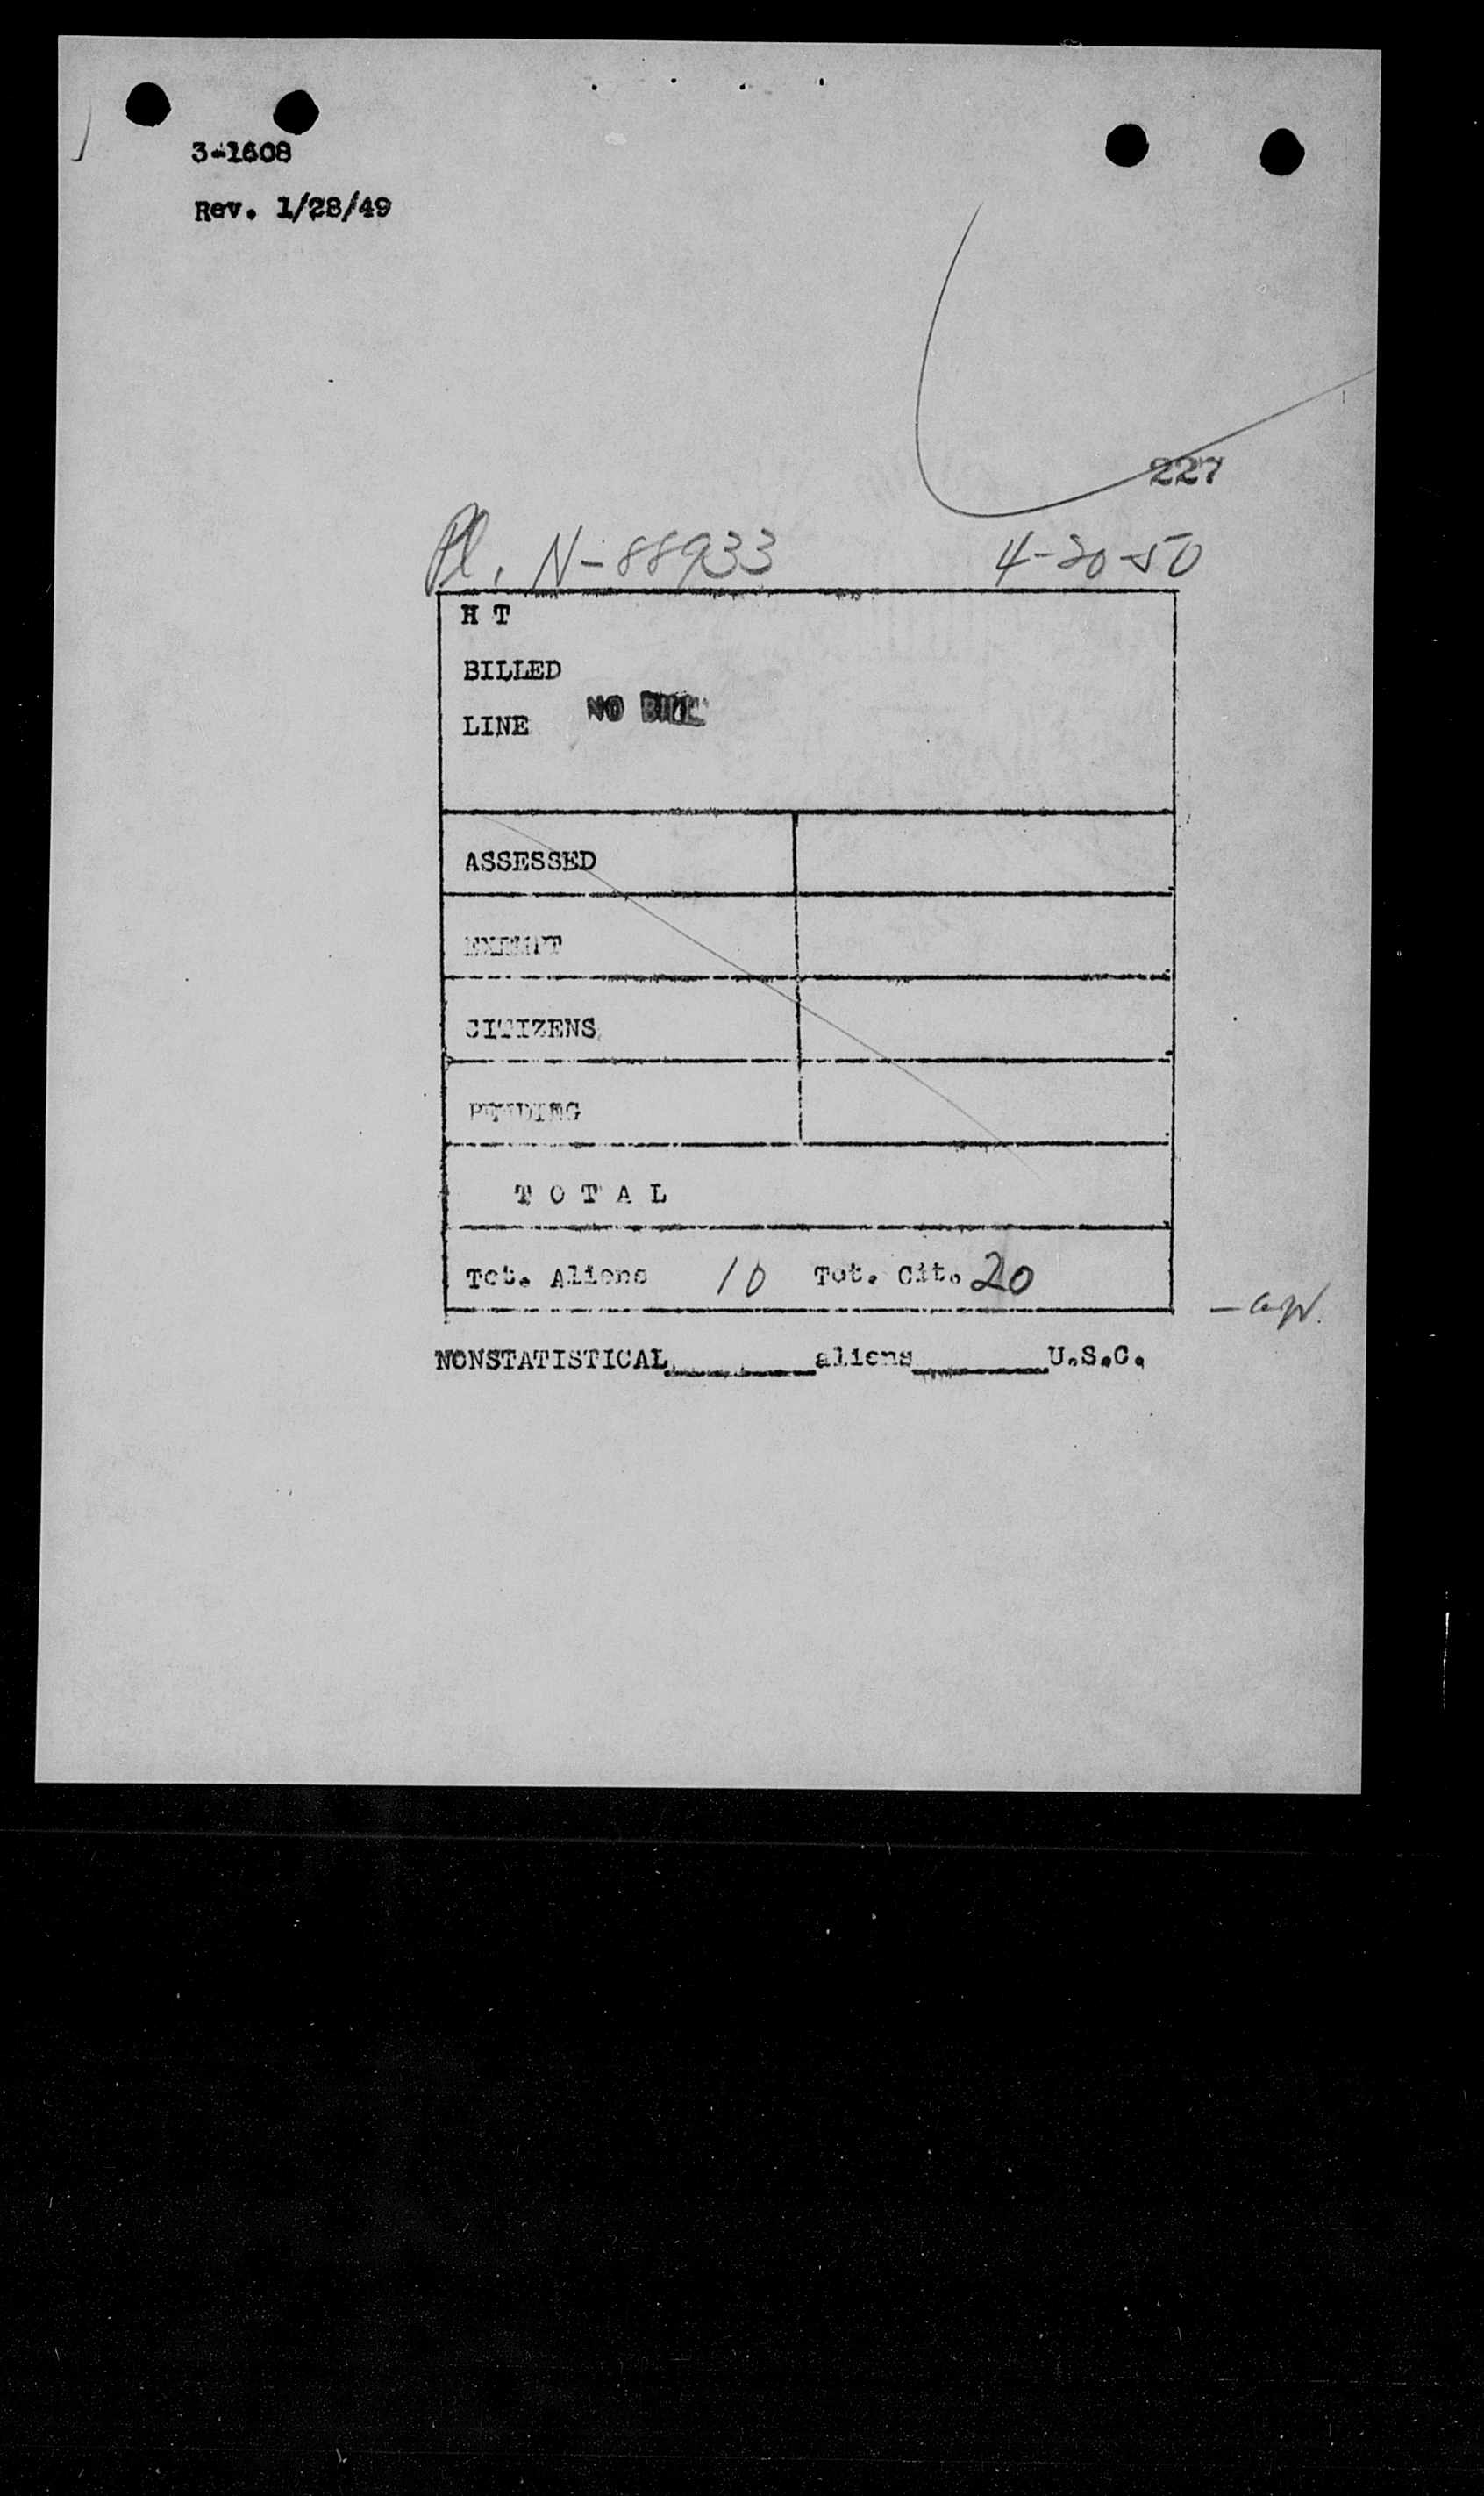 3-1608
Rev. 1/28/49
227
Pl. N-88933 4-20-50
H T
BILLED
NO BILL
LINE
ASSESSED
EXEMPT
CITIZENS
PENDING
T O T A L
Tot. Aliens 10 Tot. Cit. 20
NONSTATISTICAL aliens U.S.C.